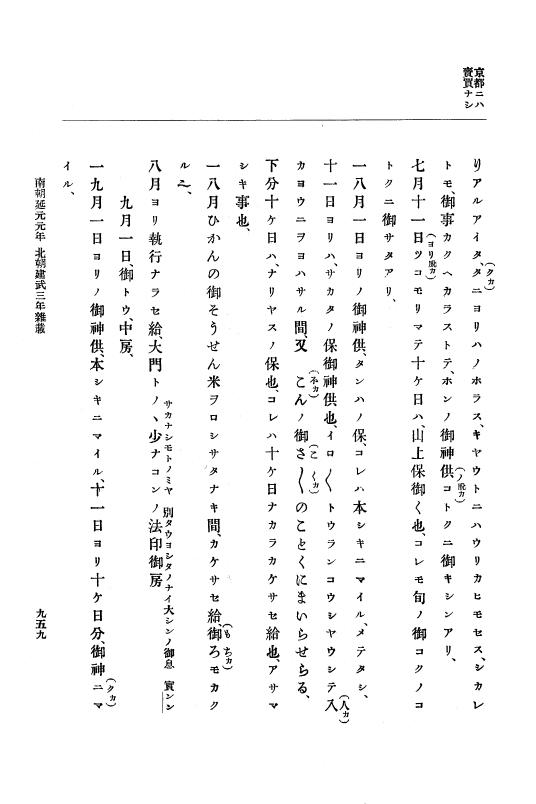 京都ニハ
賣買ナシ
リアルアイタ、タニヨリハノホラス、キヤウトニハウリカヒモセス、シカレ
(クカ)
トモ、御事カクヘカラストテ、ホンノ御神供、コトクニ御キシンアリ、
(ノ脱カ)
七月十一日ツコモリマテ十ケ日ハ、山上保御く也、コレモ旬ノ御コクノコ
(ヨリ脱カ)
トクニ御サタアリ、
一八月一日ヨリノ御神供、タンハノ保、コレハ本シキニマイル、メテタシ、
十一日ヨリハ、サカタノ保御神供也、イロ〱トウランコウシヤウシテ入
(人カ)
カヨウニヲヨハサル間、又 こんノ御さ〱のことくにまいらせらる、
(不カ)
(こ くカ)
下分十ケ日ハ、ナリヤスノ保也、コレハ十ケ日ナカラカケサセ給也、アサマ
シキ事也、
一八月ひかんの御そうせん米ヲロシサタナキ間、カケサセ給、御ろモカク
(もちカ)
ルニ、
八月ヨリ執行ナラセ給、大門トノヽ少ナコンノ法印御房
サカナシモトノミヤ 別タウヨシタノナイ大シンノ御息 實ンン
九月一日、御トウ、中房、
一九月一日ヨリノ御神供、本シキニマイル、十一日ヨリ十ケ日分、御神ニマ
(クカ)
イル、
南朝延元元年 北朝建武三年雜載
九五九